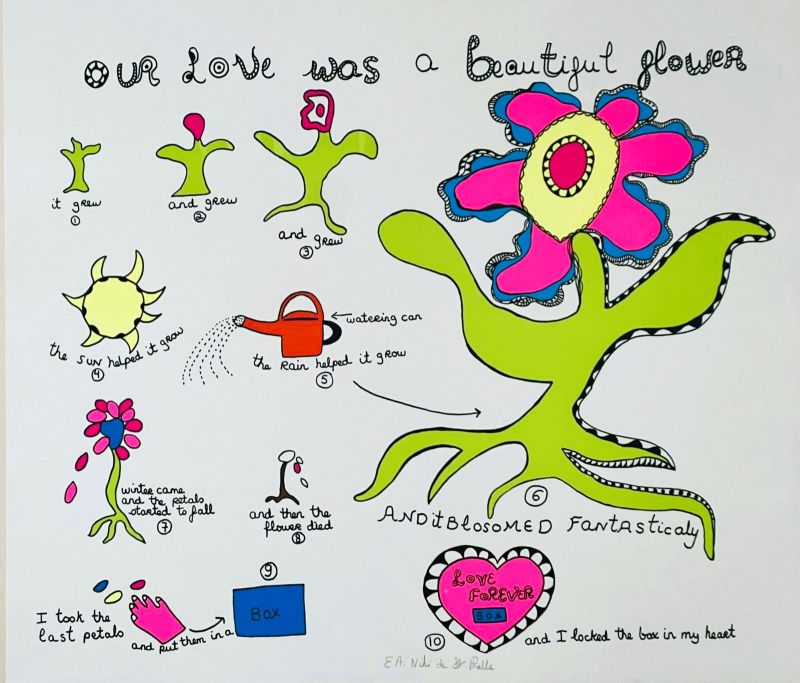 OUR LOVE was a beautiful flower
it grew
1
and grew
2
and grew
3
the SUN helped it grow
4
watering can
the RAIN helped it grow
5
6
AND it BLOSOMED FANTASTICALY
winter came
and the petals
started to fall
7
and then the
flower died
8
I took the
last petals
and put them in a
9
Box
LOVE
FOREVER
BOX
10
and I locked the box in my heart
E.A. Niki de St Phalle